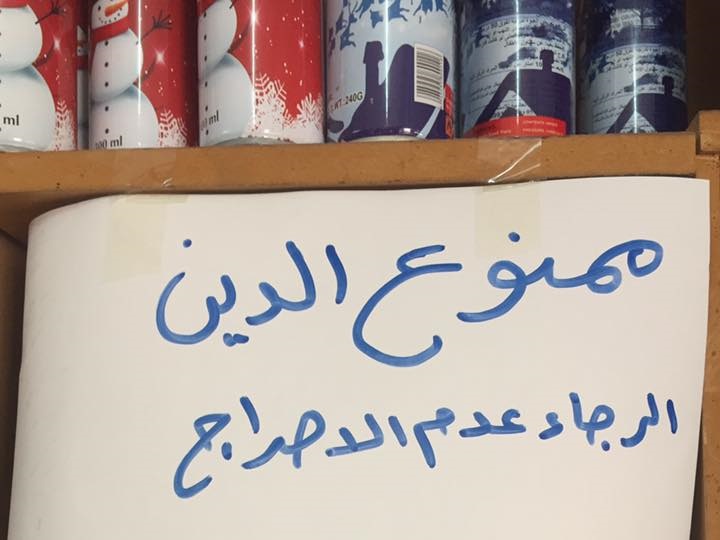 ml
100 ml
WT: 240G
ممنوع الدين
الرجاء عدم الاحراج